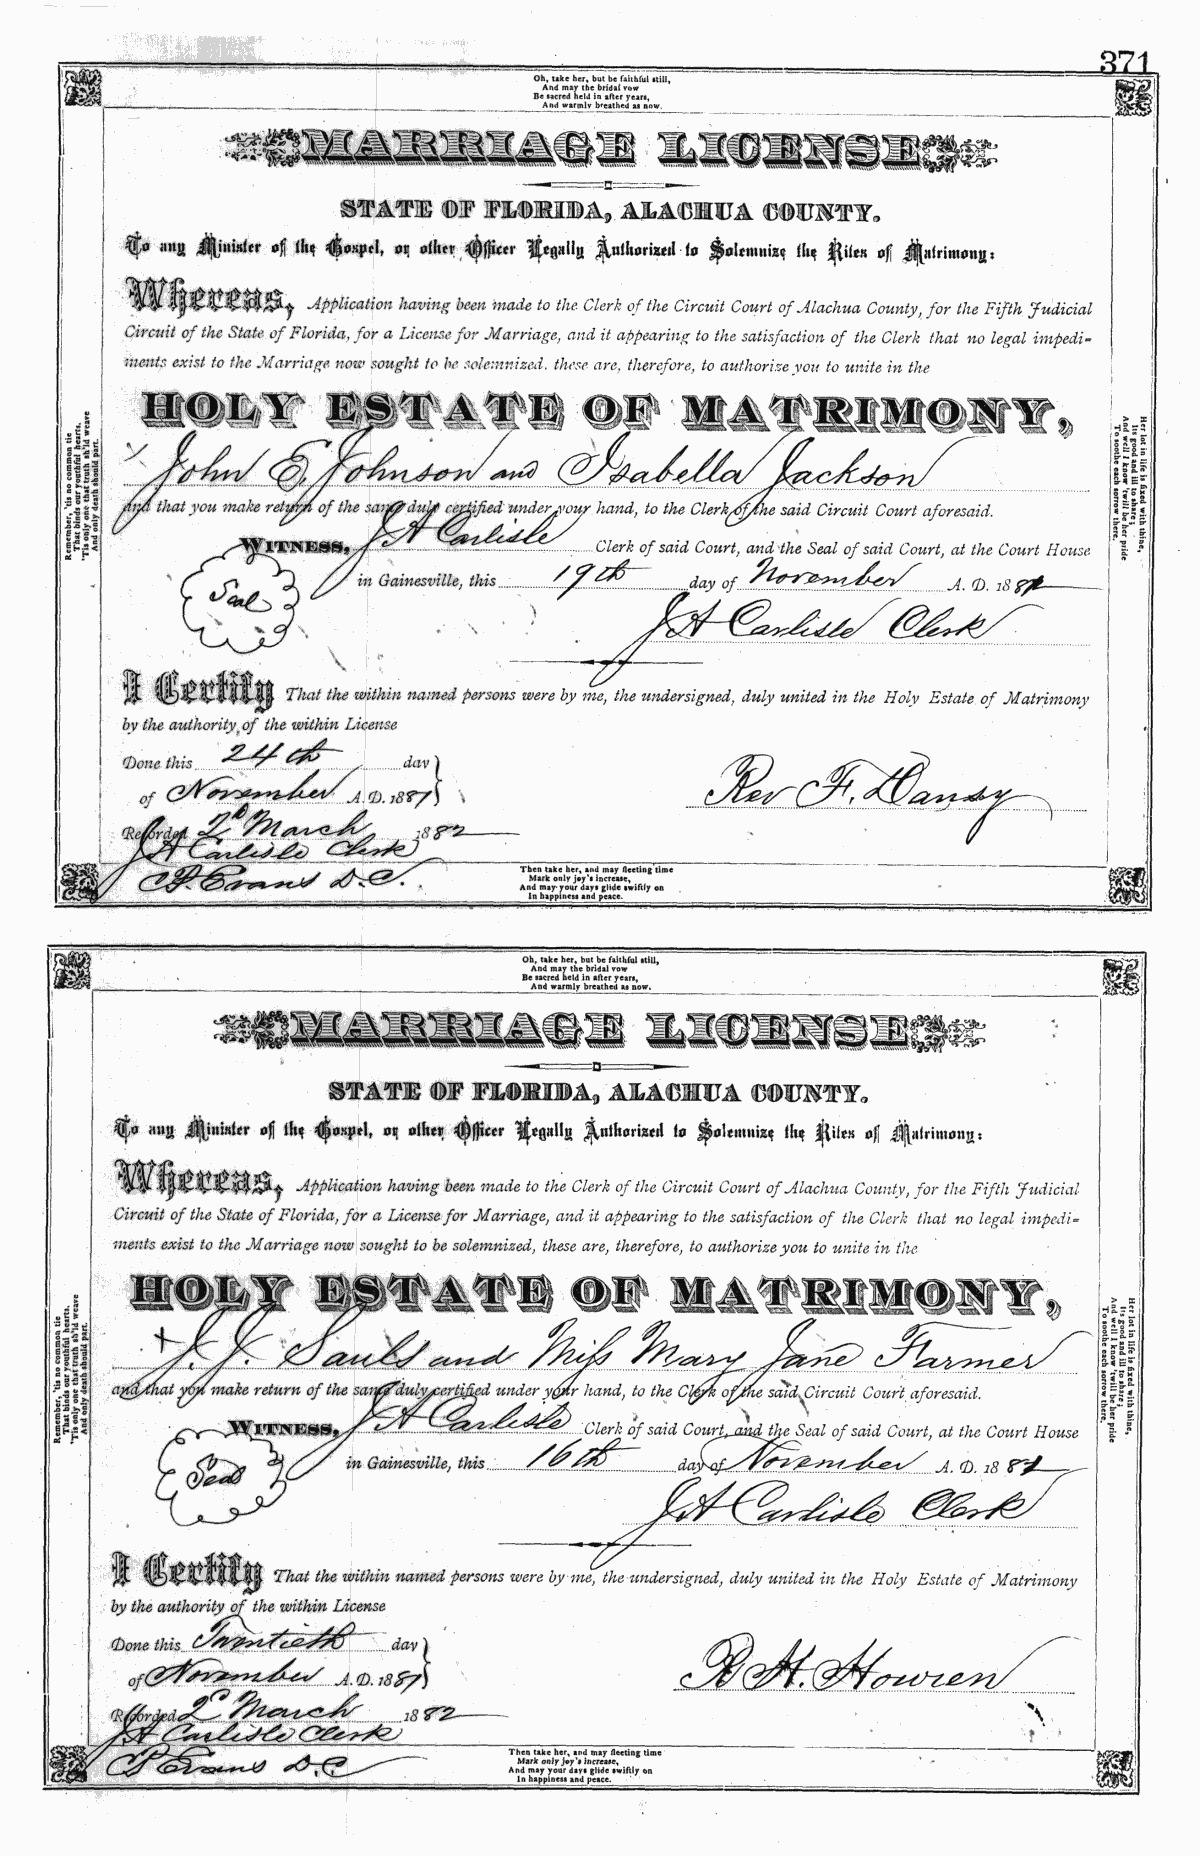 371
Oh, take her, but be faithful still,
And may the bridal vow
Be sacred held in after years,
And warmly breathed as now.
MARRIAGE LICENSE
STATE OF FLORIDA, ALACHUA COUNTY.
To any Minister of the Gospel, or other Officer Legally Authorized to Solemnize the Rites of Matrimony:
Whereas, Application having been made to the Clerk of the Circuit Court of Alachua County, for the Fifth Judicial
Circuit of the State of Florida, for a License for Marriage, and it appearing to the satisfaction of the Clerk that no legal impedi-
ments exist to the Marriage now sought to be solemnized, these are, therefore, to authorize you to unite in the
HOLY ESTATE OF MATRIMONY,
John E. Johnson and Isabella Jackson
and that you make return of the same duly certified under your hand, to the Clerk of the said Circuit Court aforesaid.
WITNESS, J A Carlisle Clerk of said Court, and the Seal of said Court, at the Court House
Seal
in Gainesville, this 19th day of November A. D. 1881
J A Carlisle Clerk
I Certify That the within named persons were by me, the undersigned, duly united in the Holy Estate of Matrimony
by the authority of the within License
Done this 24th day
of November A. D. 1881
Rev F. Dansy
Recorded 2d March 1882
J A Carlisle Clerk
C P. Evans D.C.
Remember, 'tis no common tie
That binds our youthful hearts,
'Tis only one that truth sh'ld weave
And only death should part.
Her lot in life is fixed with thine,
Its good and ill to share;
And well I know 'twill be her pride
To soothe each sorrow there.
Then take her, and may fleeting time
Mark only joy's increase,
And may your days glide swiftly on
In happiness and peace.
Oh, take her, but be faithful still,
And may the bridal vow
Be sacred held in after years,
And warmly breathed as now.
MARRIAGE LICENSE
STATE OF FLORIDA, ALACHUA COUNTY.
To any Minister of the Gospel, or other Officer Legally Authorized to Solemnize the Rites of Matrimony:
Whereas, Application having been made to the Clerk of the Circuit Court of Alachua County, for the Fifth Judicial
Circuit of the State of Florida, for a License for Marriage, and it appearing to the satisfaction of the Clerk that no legal impedi-
ments exist to the Marriage now sought to be solemnized, these are, therefore, to authorize you to unite in the
HOLY ESTATE OF MATRIMONY,
J. J. Sauls and Miss Mary Jane Farmer
and that you make return of the same duly certified under your hand, to the Clerk of the said Circuit Court aforesaid.
WITNESS, J A Carlisle Clerk of said Court, and the Seal of said Court, at the Court House
Seal
in Gainesville, this 16th day of November A. D. 1881
J A Carlisle Clerk
I Certify That the within named persons were by me, the undersigned, duly united in the Holy Estate of Matrimony
by the authority of the within License
Done this Twentieth day
of November A. D. 1881
R H. Howren
Recorded 2d March 1882
J A Carlisle Clerk
C P Evans D.C
Remember, 'tis no common tie
That binds our youthful hearts,
'Tis only one that truth sh'ld weave
And only death should part.
Her lot in life is fixed with thine,
Its good and ill to share;
And well I know 'twill be her pride
To soothe each sorrow there.
Then take her, and may fleeting time
Mark only joy's increase,
And may your days glide swiftly on
In happiness and peace.